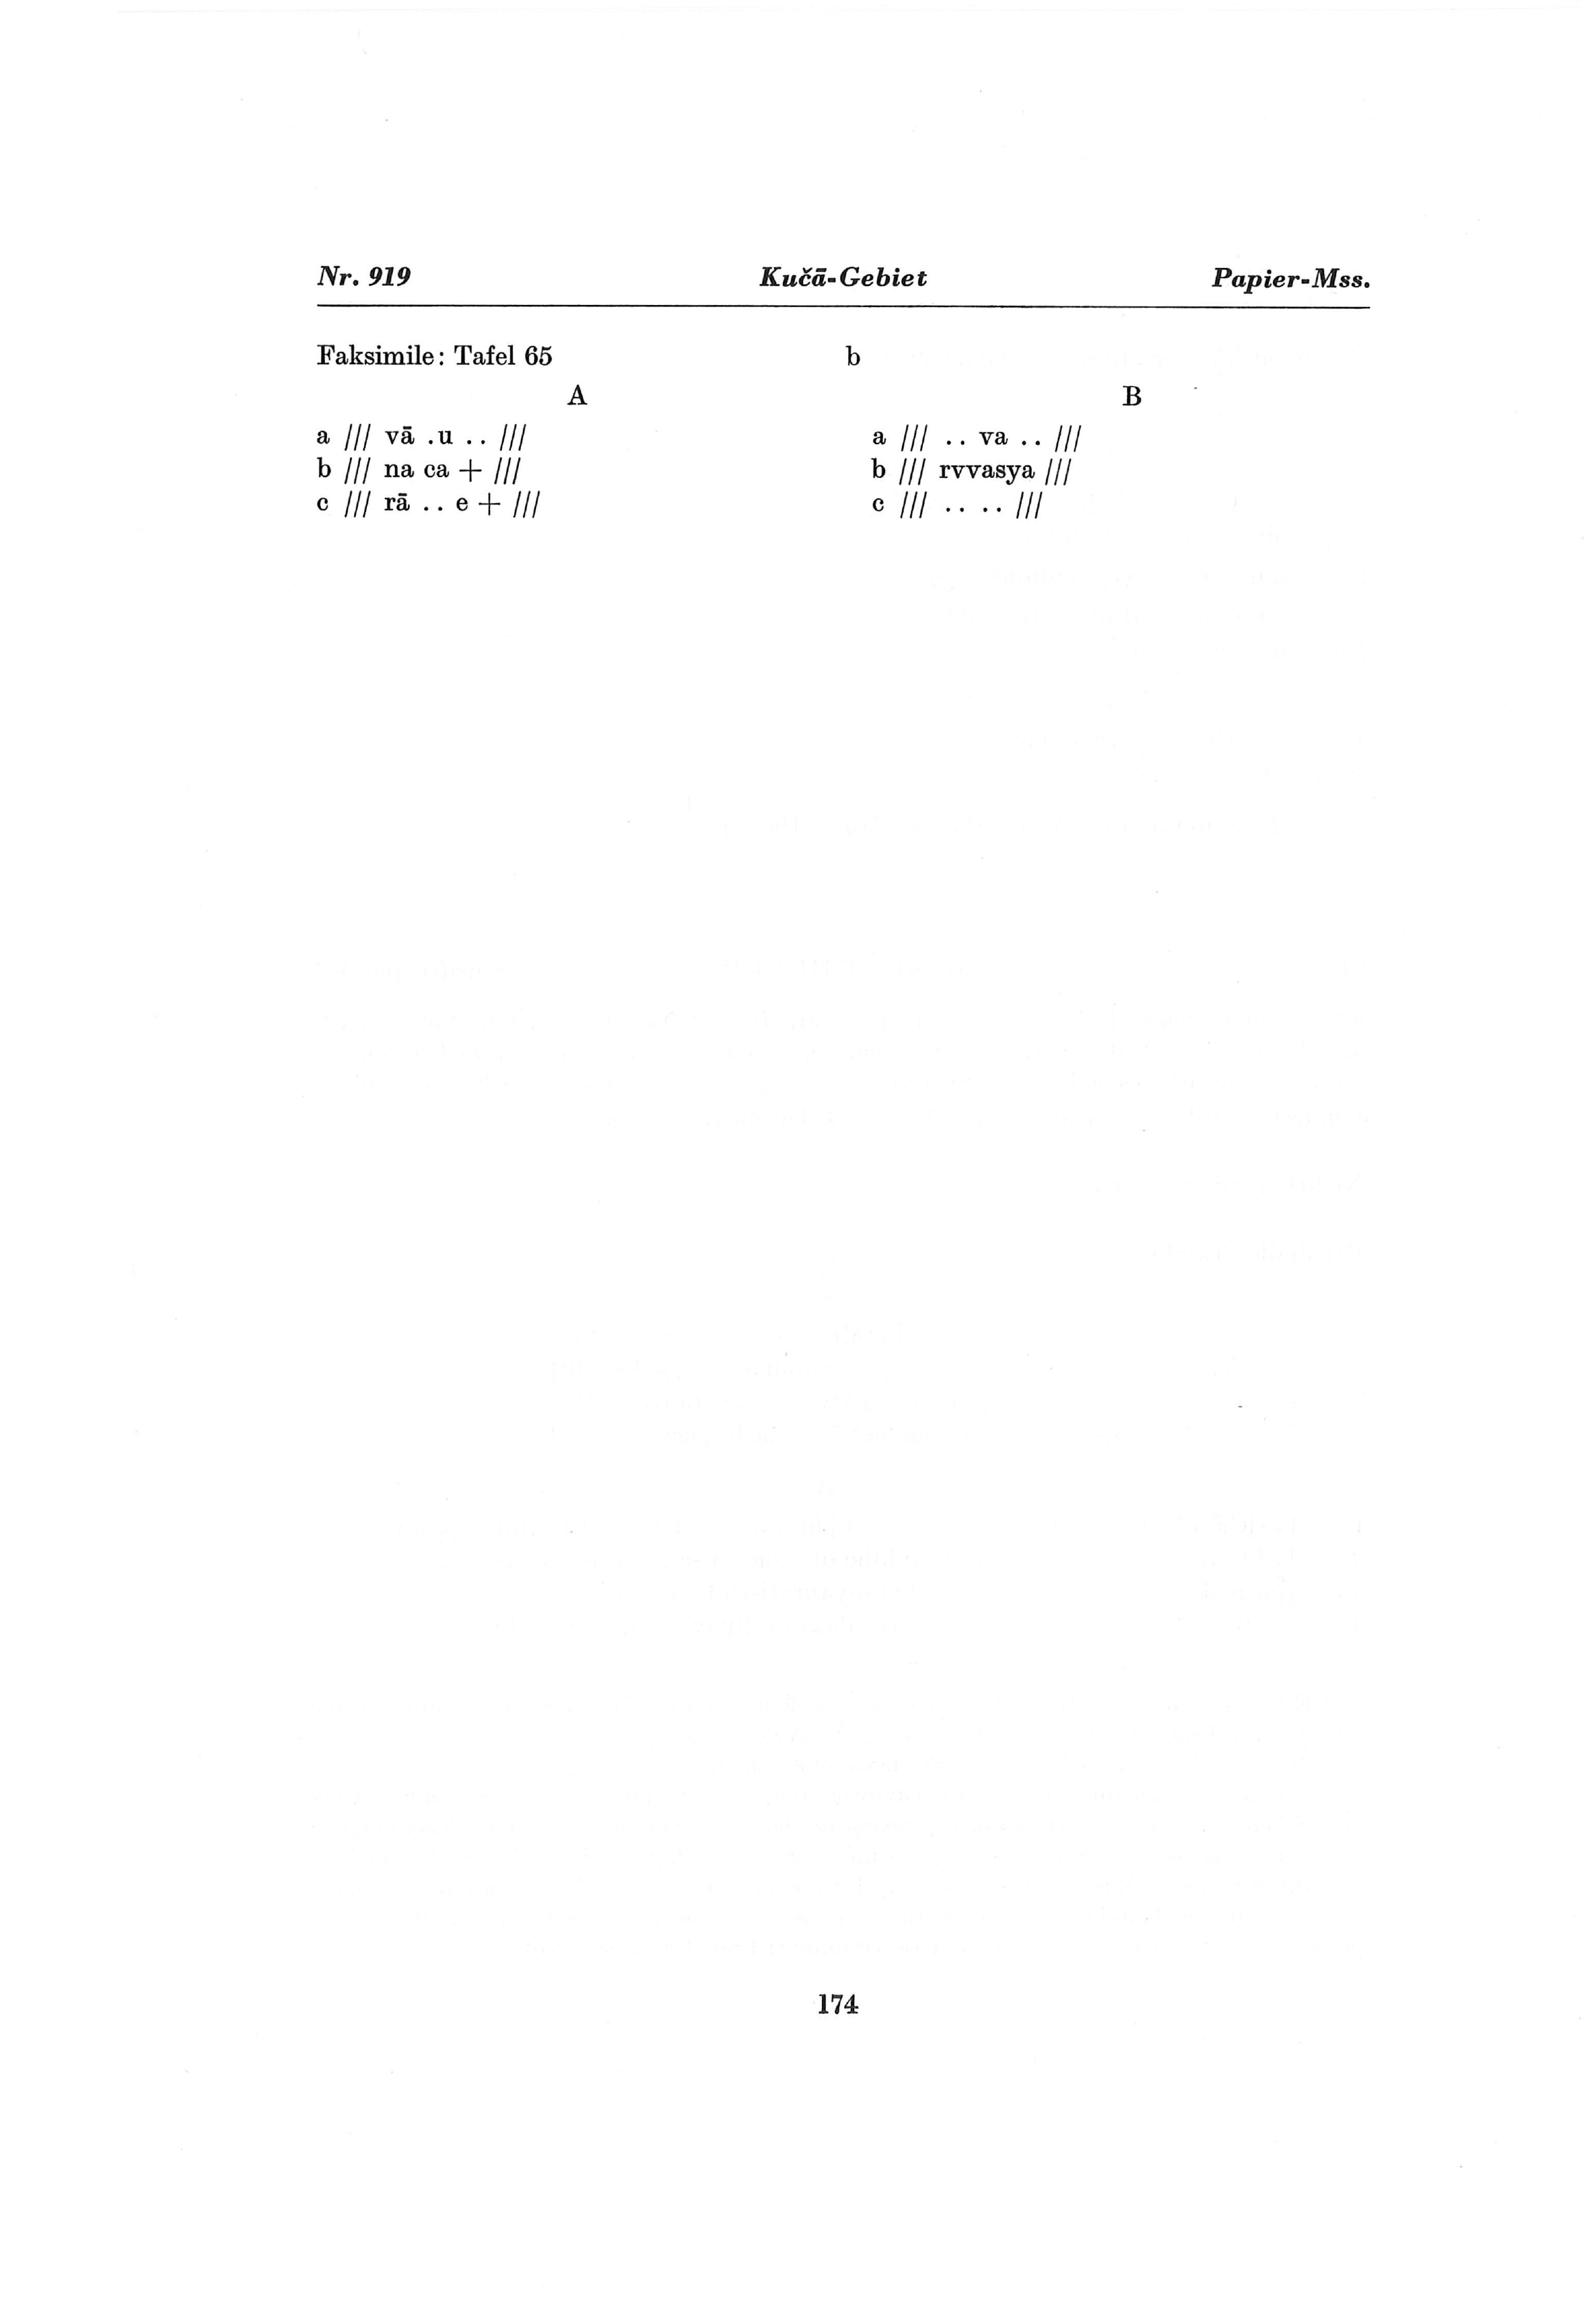 Nr. 919 Kučā-Gebiet Papier-Mss.
Faksimile: Tafel 65 b
A
a /// vā .u .. ///
b /// na ca + ///
c /// rā .. e + ///
B
a /// .. va .. ///
b /// rvvasya ///
c /// .. .. ///
174